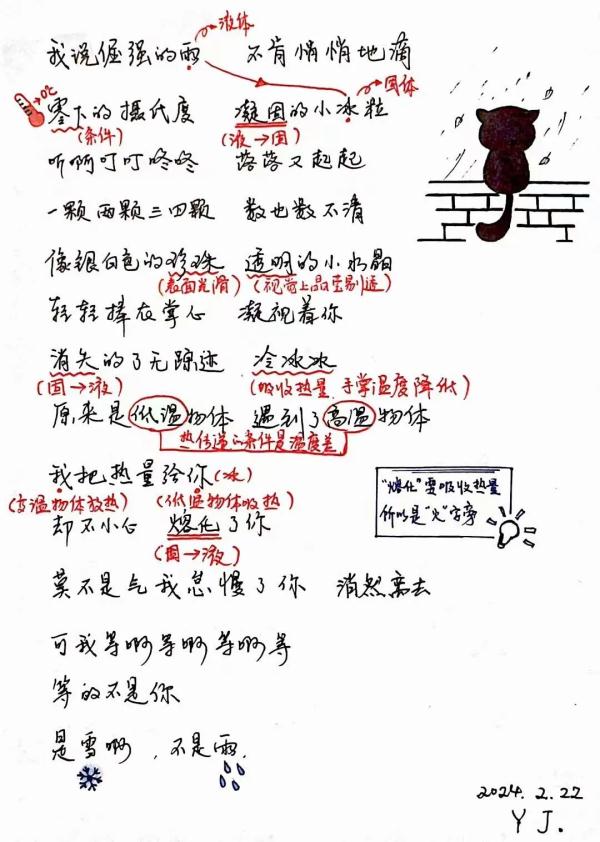 液体
我说倔强的雨 不肯悄悄地滴
固体
0℃
零下的摄氏度 凝固的小冰粒
(条件) (液→固)
听啊叮叮咚咚 落落又起起
一颗两颗三四颗 数也数不清
像银白色的珍珠 透明的小水晶
(表面光滑) (视觉上晶莹剔透)
轻轻捧在掌心 凝视着你
消失的了无踪迹 冷冰冰
(固→液) (吸收热量 手掌温度降低)
原来是低温物体 遇到了高温物体
热传递的条件是温度差
我把热量给你(冰)
(高温物体放热) (低温物体吸热)
却不小心 熔化了你
(固→液)
"熔化"要吸收热量
所以是"火"字旁
莫不是气我怠慢了你 消然离去
可我等啊等啊等啊等
等的不是你
是雪啊,不是雨.
2024.2.22
Y J.